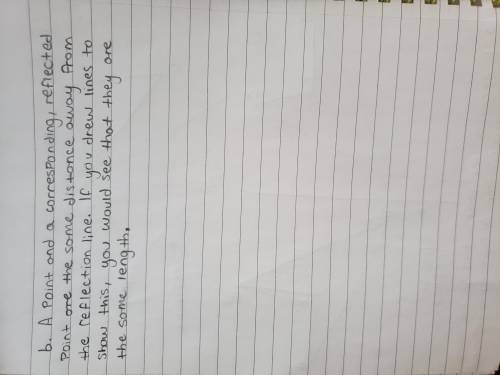 b. A point and a corresponding, reflected
point are the same distance away from
the reflection line. If you drew lines to
show this, you would see that they are
the same length.